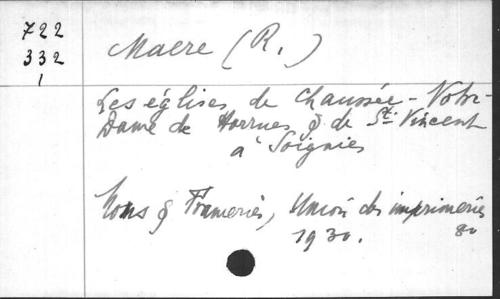 722
332
1
Maere (R.)
Les églises de Chaussée-Notre-
Dame de Horrues & de St. Vincent
à Soignies
Mons & Frameries, Union des imprimeries
1930. 8o